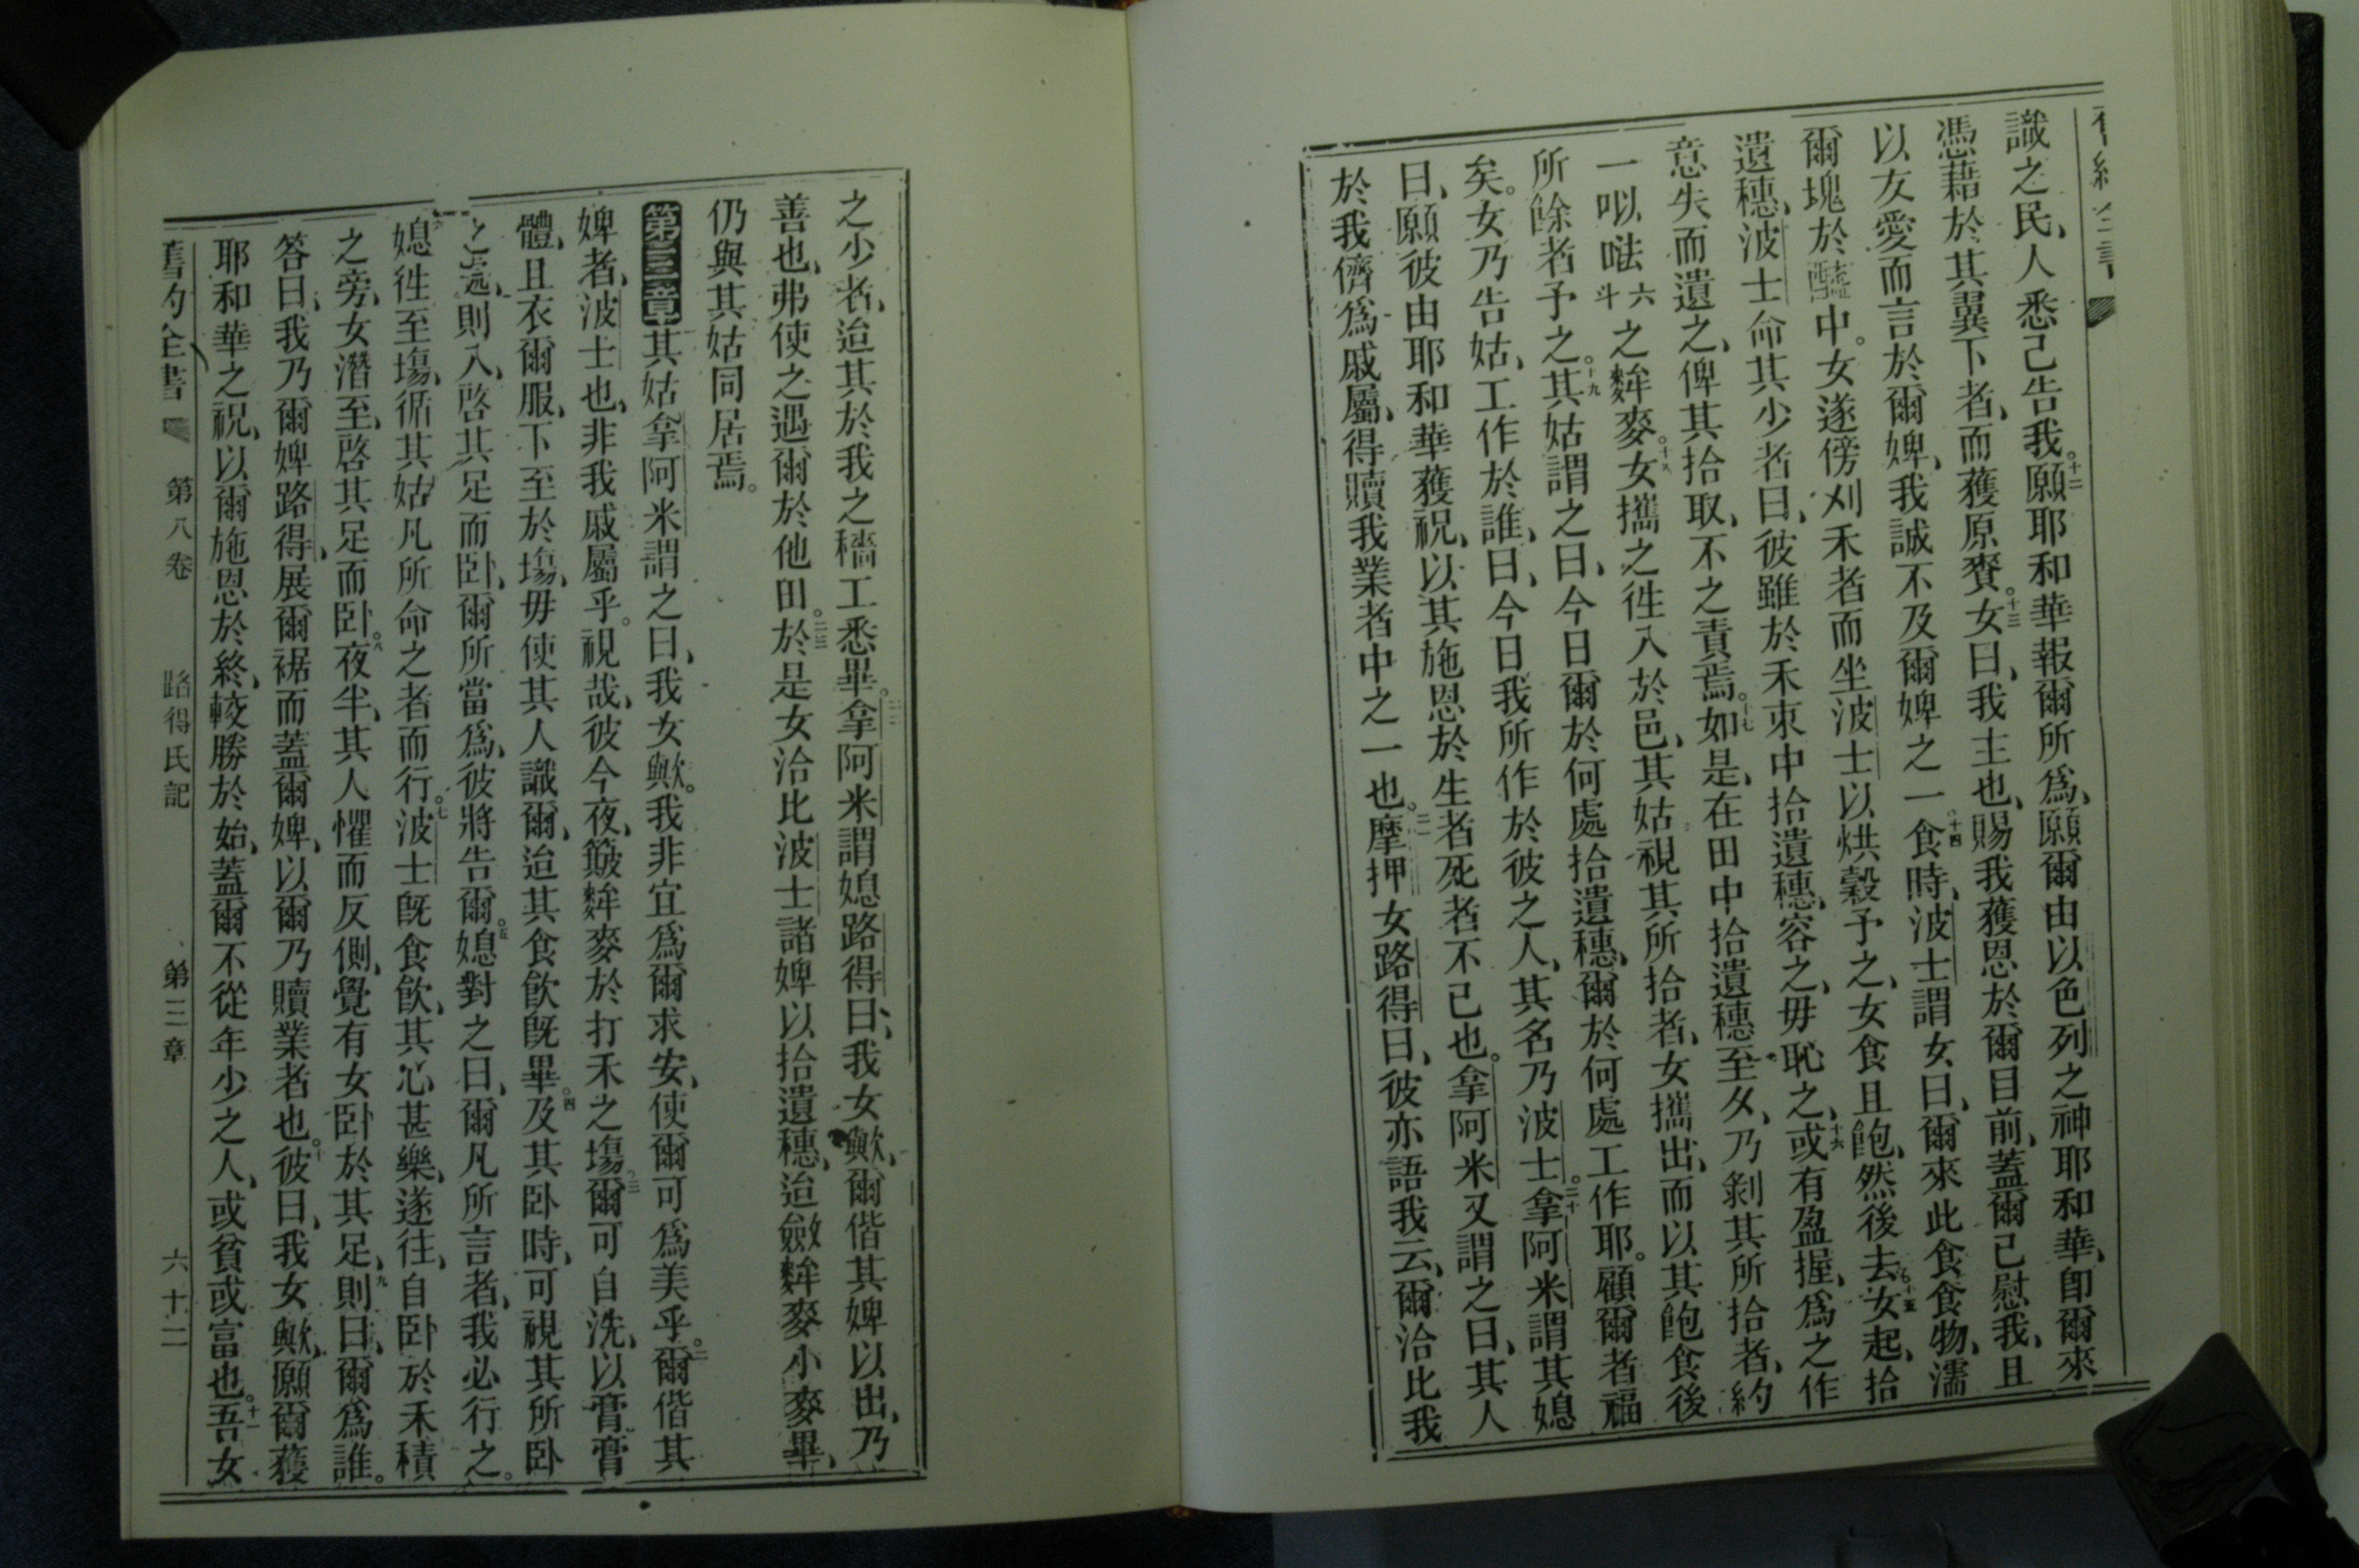 識之民、人悉已告我。十二願耶和華報爾所爲、願爾由以色列之神耶和華、卽爾來
憑藉於其翼下者、而獲原賚。十三女曰、我主也、賜我獲恩於爾目前、蓋爾已慰我、且
以友愛而言於爾婢、我誠不及爾婢之一。十四食時、波士謂女曰、爾來此食食物、濡
爾塊於醯中。女遂傍刈禾者而坐、波士以烘穀予之、女食且飽、然後去。十五女起、拾
遺穗、波士命其少者曰、彼雖於禾束中拾遺穗、容之、毋恥之、十六或有盈握、爲之作
意失而遺之、俾其拾取、不之責焉。十七如是、在田中拾遺穗至夕、乃剝其所拾者、約
一㕥㗙六斗之麰麥。十八女攜之徃入於邑、其姑視其所拾者、女攜出、而以其飽食後
所餘者予之。十九其姑謂之曰、今日爾於何處拾遺穗、爾於何處工作耶。顧爾者福
矣。女乃告姑、工作於誰、曰、今日我所作於彼之人、其名乃波士。二十拿阿米謂其媳
曰、願彼由耶和華獲祝、以其施恩於生者死者不已也。拿阿米又謂之曰、其人
於我儕爲戚屬、得贖我業者中之一也。二一摩押女路得曰、彼亦語我云、爾洽比我
之少者、迨其於我之穡工悉畢。二二拿阿米謂媳路得曰、我女歟、爾偕其婢以出、乃
善也、弗使之遇爾於他田。二三於是女洽比波士諸婢以拾遺穗、迨斂麰麥小麥畢、
仍與其姑同居焉。
第三章其姑拿阿米謂之曰、我女歟。我非宜爲爾求安、使爾可爲美乎。二爾偕其
婢者、波士也、非我戚屬乎。視哉、彼今夜、簸麰麥於打禾之塲。三爾可自洗、以膏膏
體、且衣爾服、下至於塲、毋使其人識爾、迨其食飮旣畢。四及其卧時、可視其所卧
之處、則入、啓其足而卧、爾所當爲、彼將告爾。五媳對之曰、爾凡所言者、我必行之。
媳徃至塲、循其姑凡所命之者而行。七波士旣食飮、其心甚樂、遂往、自卧於禾積
之旁、女潛至、啓其足而卧。八夜半、其人懼而反側、覺有女卧於其足、九則曰、爾爲誰。
答曰、我乃爾婢路得、展爾裾而蓋爾婢、以爾乃贖業者也。十彼曰、我女歟、願爾獲
耶和華之祝、以爾施恩於終、較勝於始、蓋爾不從年少之人、或貧或富也。十一吾女
舊約全書 第八卷 路得氏記 第三章 六十二